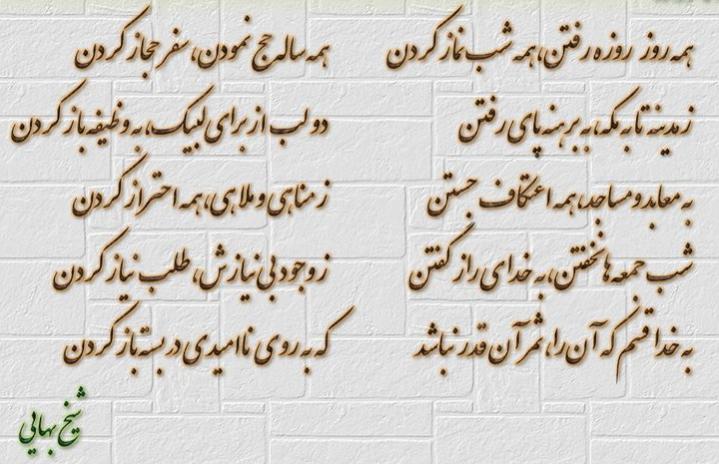 همه روز روزه رفتن، همه شب نماز کردن همه ساله حج نمودن، سفر حجاز کردن
ز مدینه تا به مکه، به برهنه پای رفتن دو لب از برای لبیک، به وظیفه باز کردن
به معابد و مساجد، همه اعتکاف جستن ز مناهی و ملاهی، همه احتراز کردن
شب جمعه ها نخفتن، به خدای راز گفتن ز وجود بی نیازش، طلب نیاز کردن
به خدا قسم که آن را، ثمر آن قدر نباشد که به روی ناامیدی در بسته باز کردن
شیخ بهایی